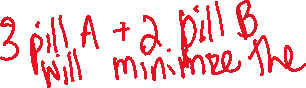 3 pill A + 2 pill B
will minimize the